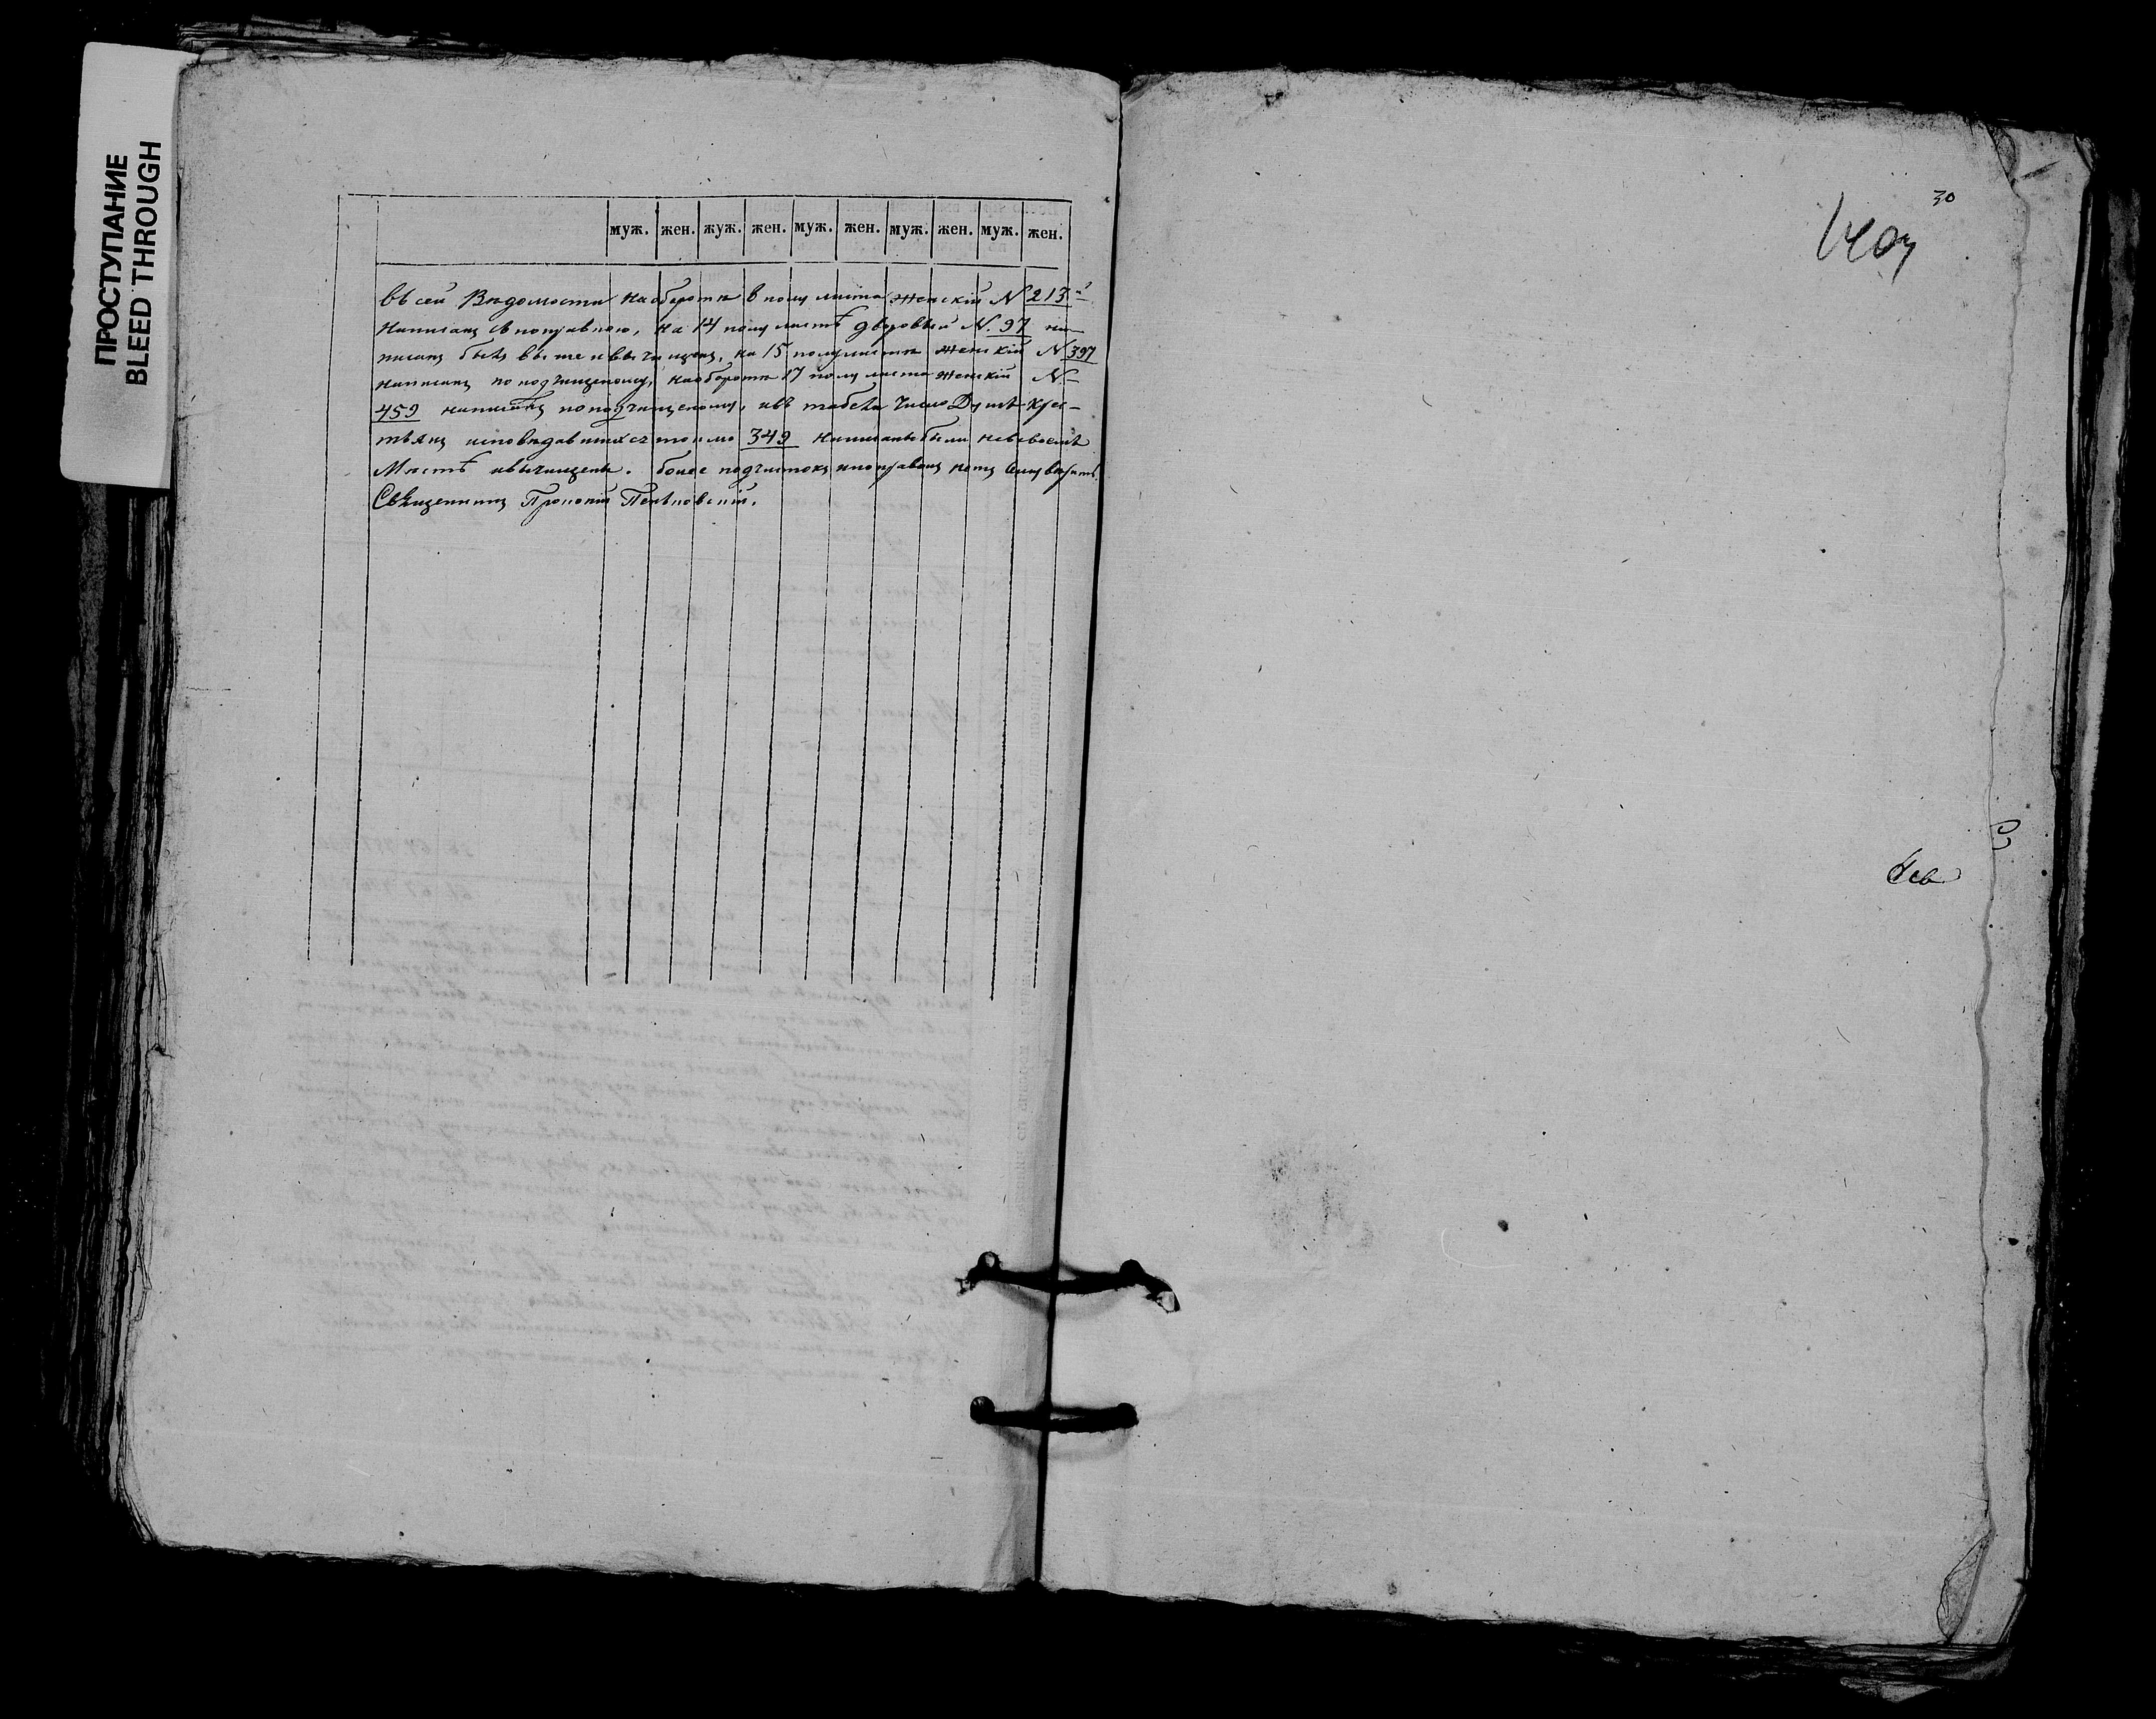 ПРОСТУПАНИЕ
BLEED THROUGH
муж. жен. жуж. жен. муж. жен. муж. жен. муж. жен.
въ сей Вѣдомости на оборотѣ 8 полулиста женскій N 213й
написанъ с поправкою, на 14 полулистѣ дворовый N. 97 на-
писанъ былъ выше и вычищенъ, на 15 полулистѣ женскій N 397
написанъ по подчищеному, на оборотѣ 17 полулиста женскій N.-
459 написанъ по подчищеному, и въ табели число Душъ крес-
тьянъ исповѣдавшихся токмо 349 написаны были не въ своемъ
Мѣстѣ и вычищены. более подчистокъ и поправокъ нетъ
Священникъ Прокопій
30